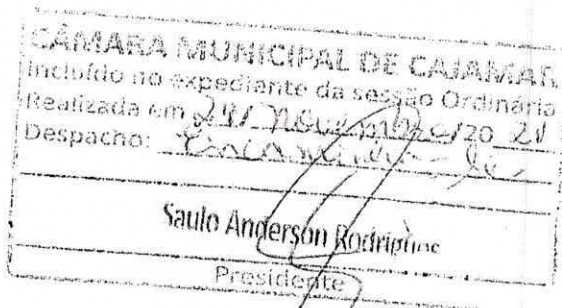 CÂMARA MUNICIPAL DE CAJAMAR
Incluído no expediente da sessão Ordinária
Realizada em 24/ novembro/20 21
Despacho: Encaminhe-se
Saulo Anderson Rodrigues
Presidente